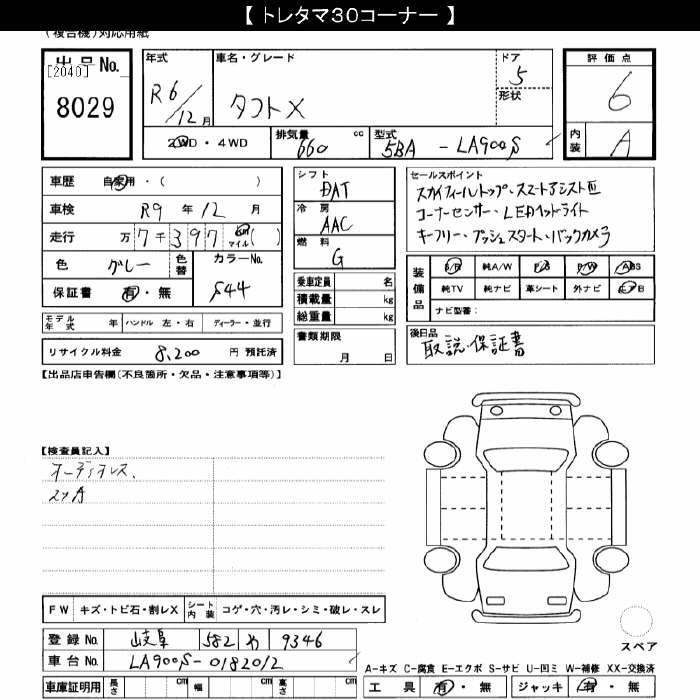 【トレタマ30コーナー】
(複合機)対応用紙
出品No.
[2040]
8029
年式
R6/12月
車名・グレード
タフトX
ドア
5
形状
評価点
6
内装
A
2WD・4WD
排気量
660
cc
型式
5BA - LA900S
車歴
自家用・( )
車検
R9年12月
走行
万7千397
km
マイル
( )
色
グレー
色替
カラーNo.
S44
保証書
有・無
モデル年式
年
ハンドル 左・右
ディーラー・並行
リサイクル料金 8,200 円 預託済
シフト
DAT
冷房
AAC
燃料
G
乗車定員 名
積載量 kg
総重量 kg
書類期限
月 日
セールスポイント
スカイフィールトップ・スマートアシストⅢ
コーナーセンサー・LEDヘッドライト
キーフリー・プッシュスタート・バックカメラ
装備品
S/R 純A/W P/S P/W ABS
純TV 純ナビ 革シート 外ナビ エアB
ナビ型番:
後日品
取説・保証書
【出品店申告欄(不良箇所・欠品・注意事項等)】
【検査員記入】
オーディオレス.
スソA
FW キズ・トビ石・割レX
シート内装
コゲ・穴・汚レ・シミ・破レ・スレ
登録No. 岐阜 582 わ 9346
車台No. LA900S-0182012
車庫証明用
長さ cm
幅 cm
高さ cm
スペア
A-キズ C-腐食 E-エクボ S-サビ U-凹ミ W-補修 XX-交換済
工具 有・無
ジャッキ 有・無